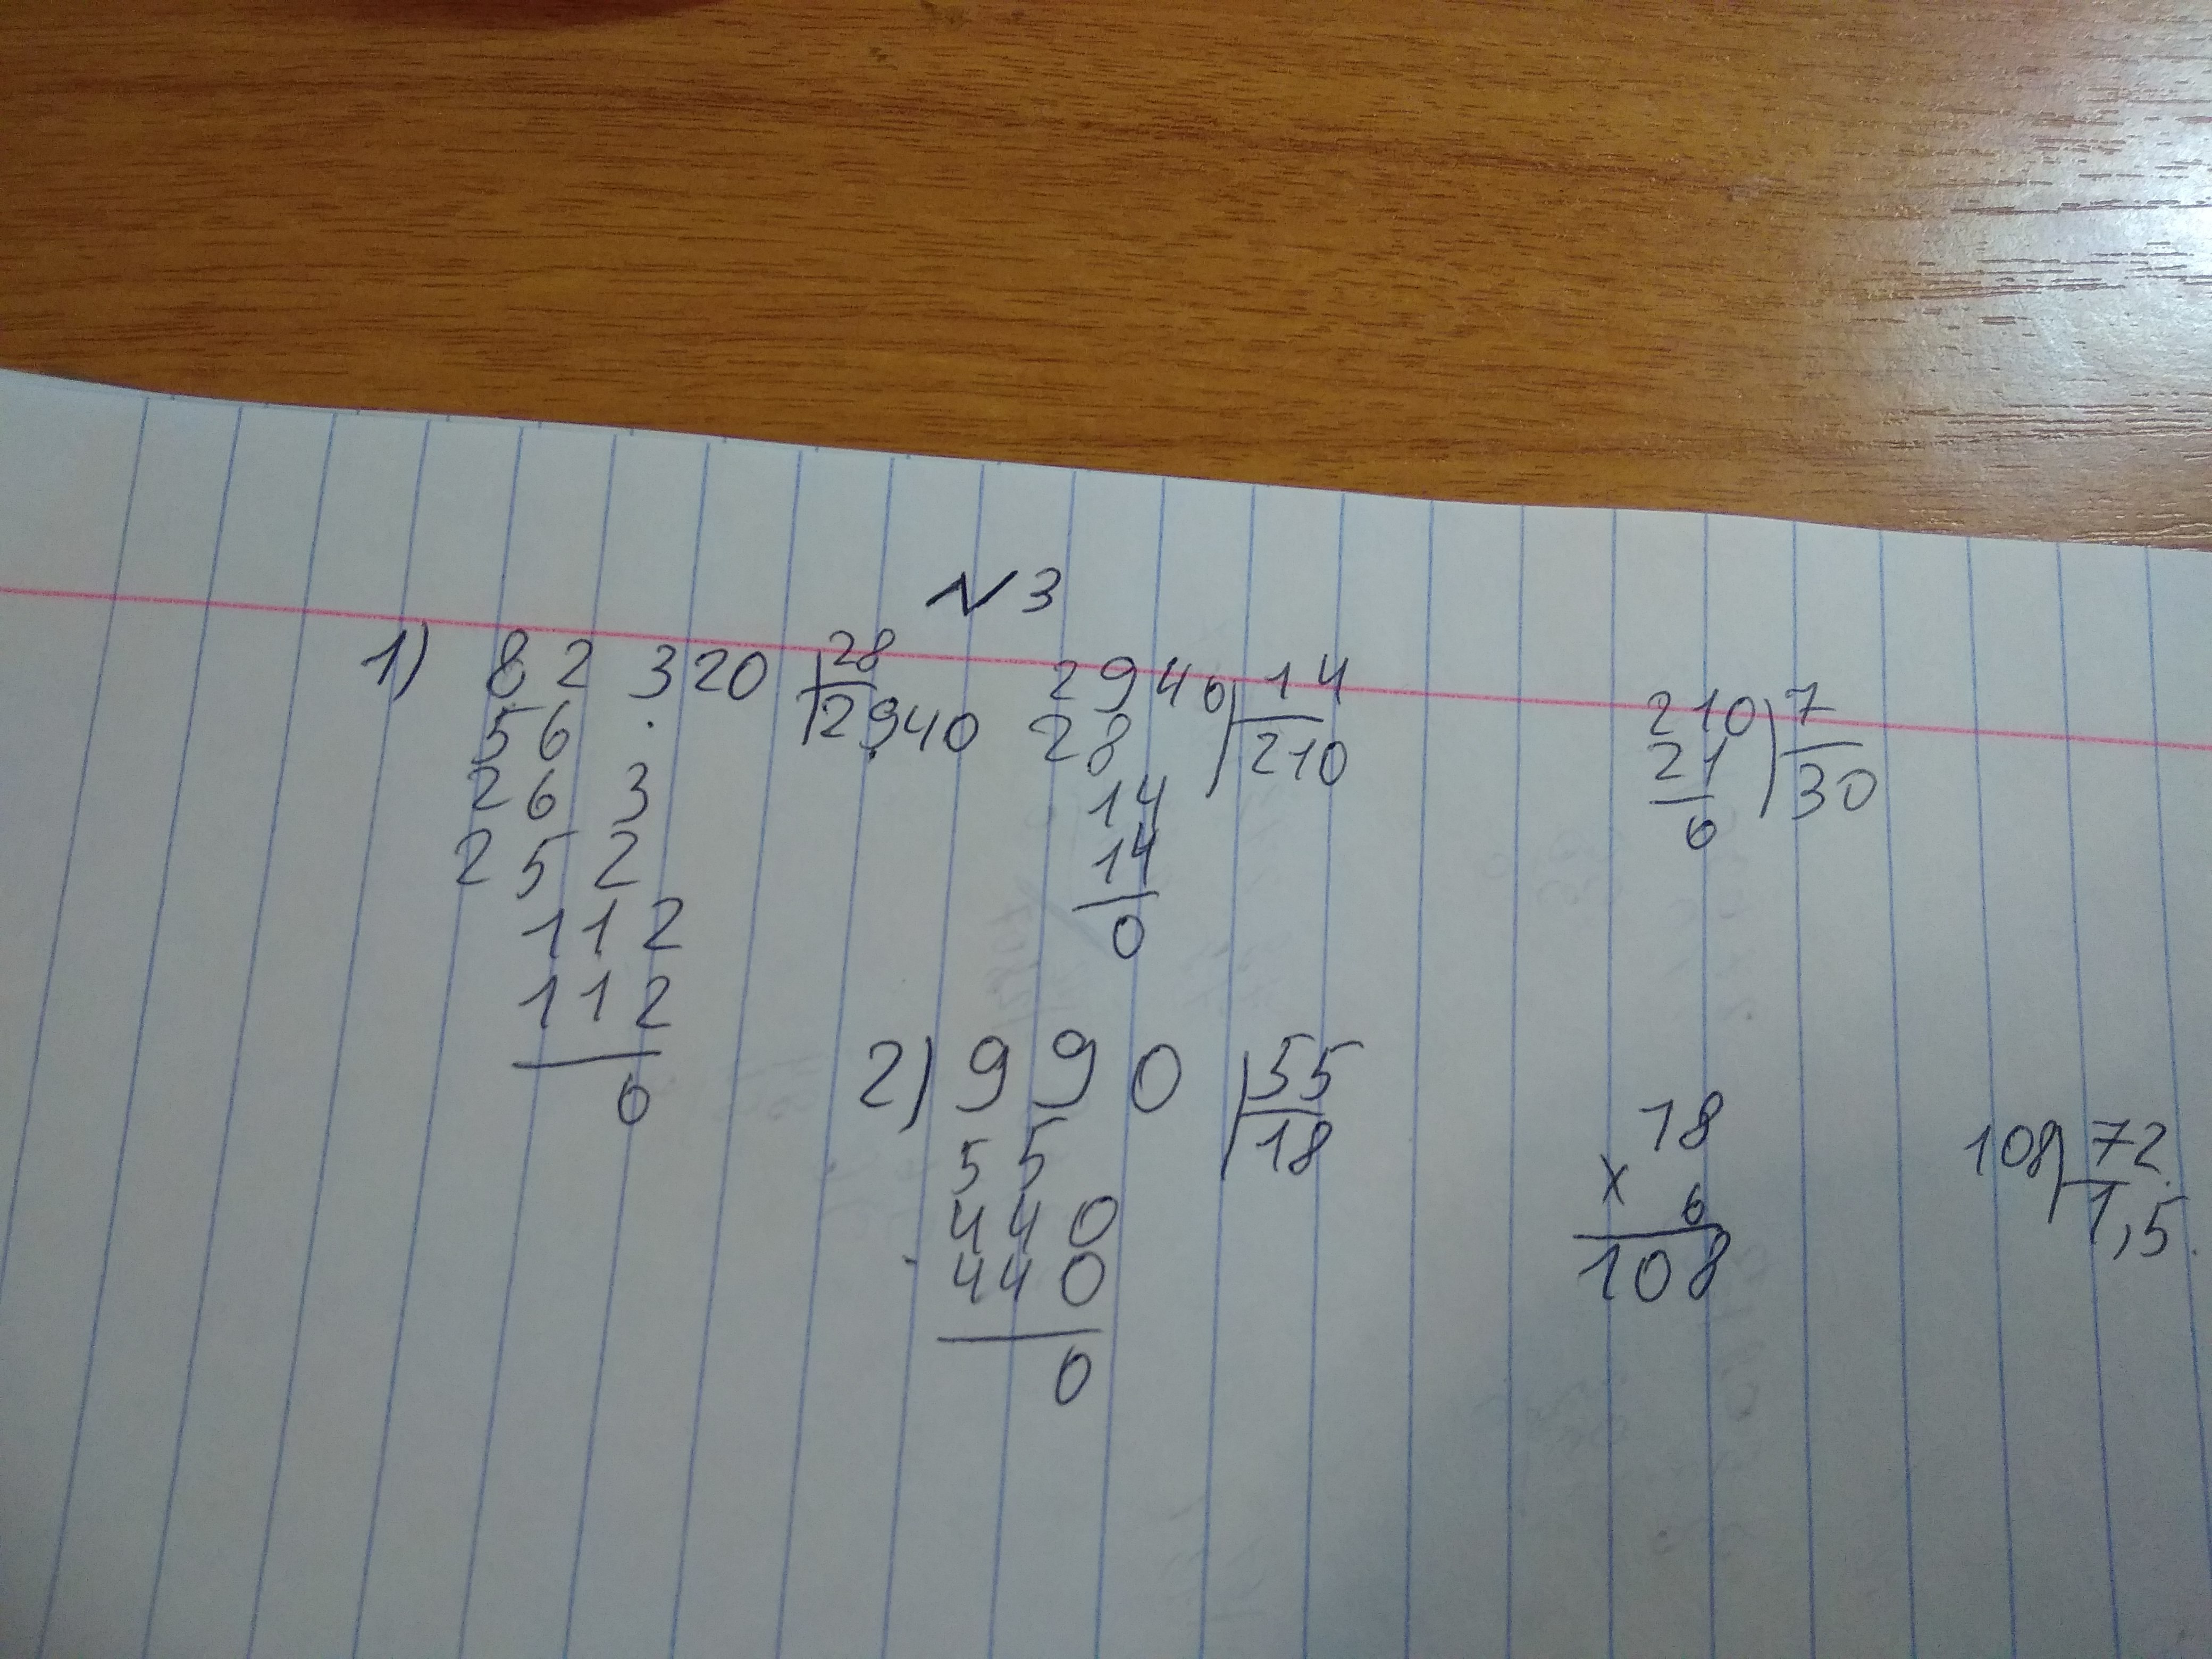 N 3
1) 82 320 | 28
56 2940
26 3
2 5 2
112
112
0
2940 | 14
28 210
14
14
0
210 | 7
21 30
0
2) 990 | 55
55 18
440
440
0
18
x 6
108
108 | 72
1,5